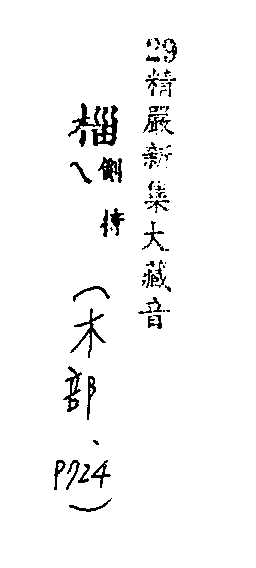 29精嚴新集大藏音
椔側持乀
(木部、P724)